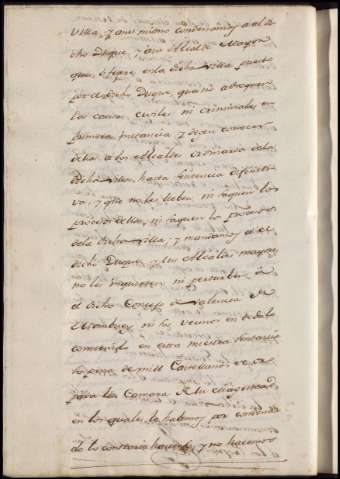 Villa, y ansi mismo condenamos a el di
cho Duque, y a su Alcalde Mayor
que, es o fuere en la dicha Villa puesto
por el dicho Duque, que no aboquen
las causas civiles ni criminales en
primera instancia y dejen conocer
dellas a los Alcaldes ordinarios de la
dicha Villa, hasta sentencia difiniti
va, y que no les lleben ni saquen los
procesos dellas, ni saquen los presos
de la dicha Villa, y mandamos a el
dicho Duque y sus Alcaldes mayores
no les inquieten ni perturben a
el dicho Concejo de Valencia de
ni sus vecinos en
contenido en esta nuestra sentencia
so pena de mill Castellanos de oro
para la Camara de su Magestad
en los quales lo habemos por condenado
lo contrario haciendo, y no hacemos